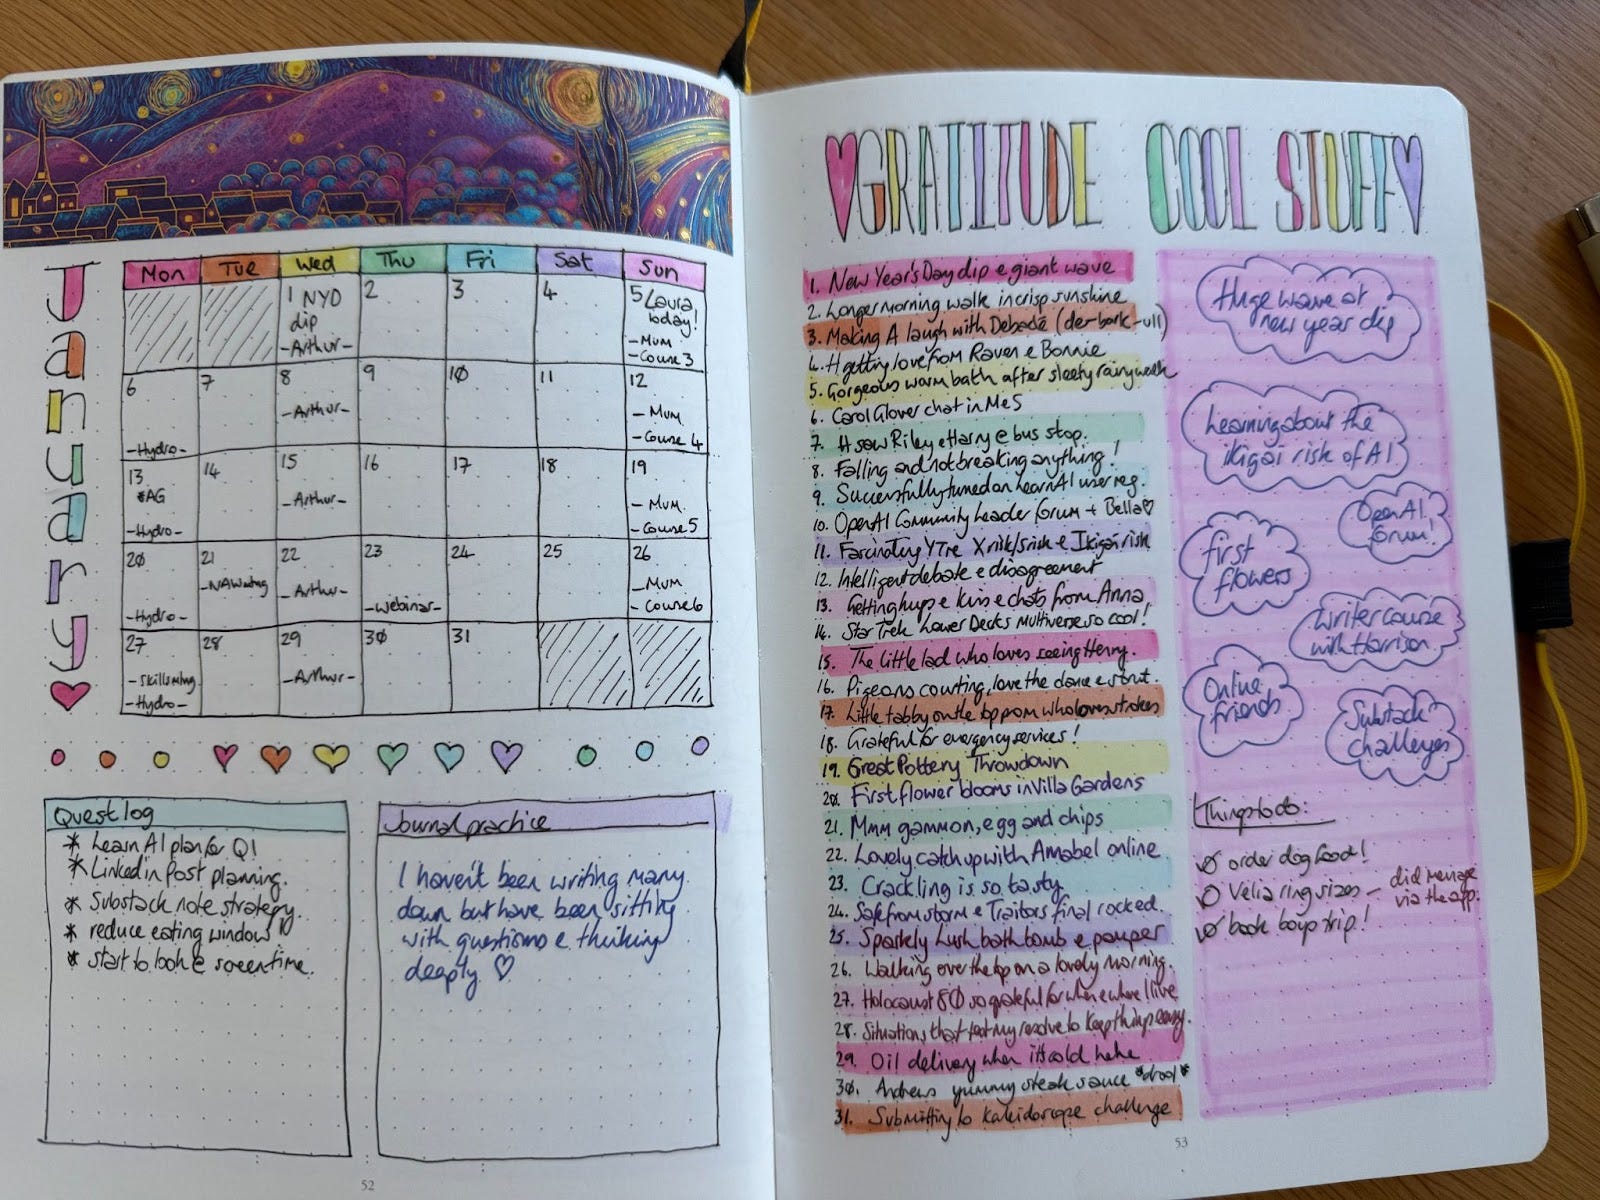 January
Mon Tue Wed Thu Fri Sat Sun
1 NYD dip -Arthur-
2
3
4
5 Laura today! -Mum -Course 3
6 -Hydro-
7
8 -Arthur-
9
10
11
12 -Mum -Course 4
13 *AG -Hydro-
14
15 -Arthur-
16
17
18
19 -Mum -Course 5
20 -Hydro-
21
22 -Arthur-
23 -Webinar-
24
25
26 -Mum -Course 6
27 -Hydro-
28
29 -Arthur-
30
31
Quest log
* Learn AI plan for Q1
* Linkedin Post planning.
* Substack note strategy
* reduce eating window
* start to look @ screentime.
Journal practice
I haven't been writing many
down but have been sitting
with questions & thinking
deeply ♡
52
GRATITUDE COOL STUFF
1. New Year's Day dip & giant wave
2. Longer morning walk in crisp sunshine
3. Making A laugh with Debacle (der-bark-ull)
4. H getting love from Raven & Bonnie
5. Gorgeous warm bath after sleety rainy walk
6. Carol Glover chat in M&S
7. H saw Riley & Harry @ bus stop.
8. Falling and not breaking anything!
9. Successfully tuned on Learn AI user reg.
10. OpenAI Community Leader forum + Bella♡
11. Fascinating YT re X risk/s risk & Ikigai risk
12. Intelligent debate & disagreement
13. Getting hugs & kiss & chats from Anna
14. Star Trek Lower Decks Multiverse so cool!
15. The little lad who loves seeing Henry.
16. Pigeons courting, love the dance & strut.
17. Little tabby on the top prom who loves strokes
18. Grateful for emergency services!
19. Great Pottery Throwdown
20. First flower blooms in Villa Gardens
21. Mmm gammon, egg and chips
22. Lovely catch up with Amabel online
23. Crackling is so tasty
24. Safe from storm & Traitors final rocked.
25. Sparkely Lush bath bomb & pamper
26. Walking over the top on a lovely morning.
27. Holocaust 80 so grateful for when & where I live
28. Situations that test my resolve to keep things easy.
29. Oil delivery when it's cold hehe
30. Andrews yummy steak sauce *drool*
31. Submitting to Kaleidoscope challenge
Huge wave at
new year dip
Learning about the
ikigai risk of AI
OpenAI
forum!
first
flowers
Writer course
with Harrison
Online
friends
Substack
challenges
Things to do:
order dog food!
Velia ring sizes - did manage
via the app.
book boys trip!
53